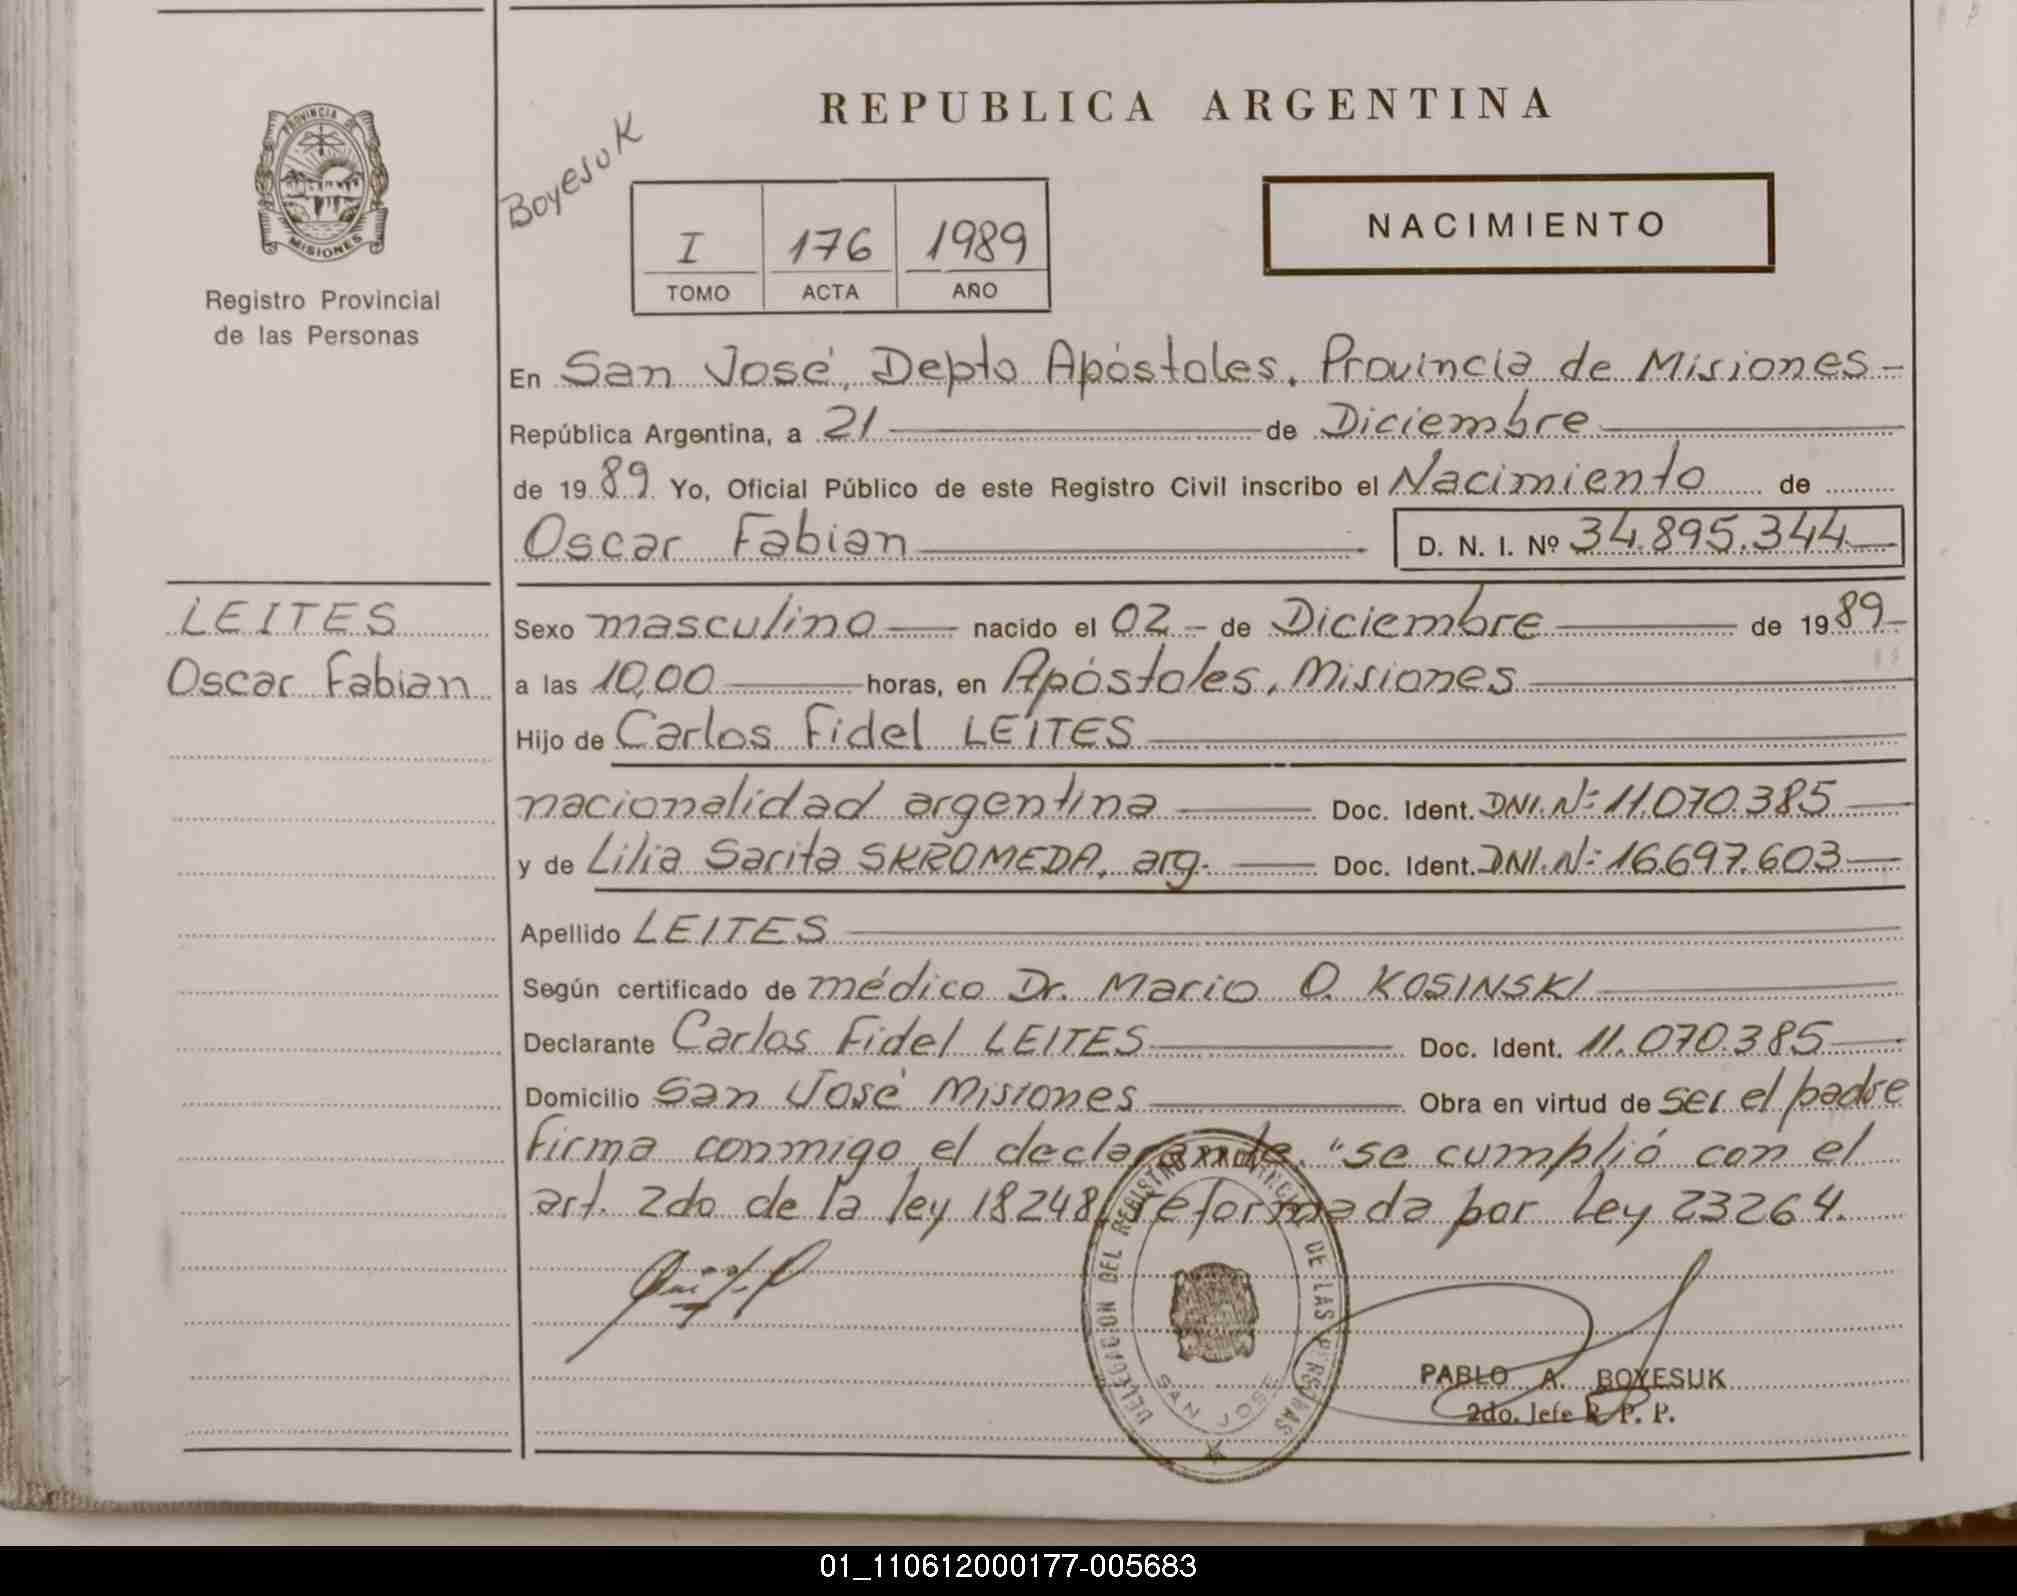 REPUBLICA ARGENTINA
PROVINCIA DE
MISIONES
Registro Provincial
de las Personas
Boyesuk
NACIMIENTO
I 176 1989
TOMO ACTA AÑO
En San José, Depto Apóstoles, Provincia de Misiones -
República Argentina, a 21 de Diciembre
de 1989 Yo, Oficial Público de este Registro Civil inscribo el Nacimiento de
Oscar Fabian D. N. I. Nº 34.895.344
LEITES
Oscar Fabian
Sexo masculino nacido el 02 - de Diciembre de 1989
a las 10,00 horas, en Apóstoles, Misiones
Hijo de Carlos Fidel LEITES
nacionalidad argentina Doc. Ident. DNI. Nº 11.070.385
y de Lilia Sarita SKROMEDA, arg. Doc. Ident. DNI. Nº 16.697.603
Apellido LEITES
Según certificado de médico Dr. Mario O. KOSINSKI
Declarante Carlos Fidel LEITES Doc. Ident. 11.070.385
Domicilio San José Misiones Obra en virtud de ser el padre
firma conmigo el declarante. "se cumplió con el
art. 2do de la ley 18248, reformada por ley 23264.
DELEGACION DEL REGISTRO PROVINCIAL DE LAS PERSONAS
SAN JOSE
PABLO A. BOYESUK
2do. Jefe R. P. P.
01_110612000177-005683